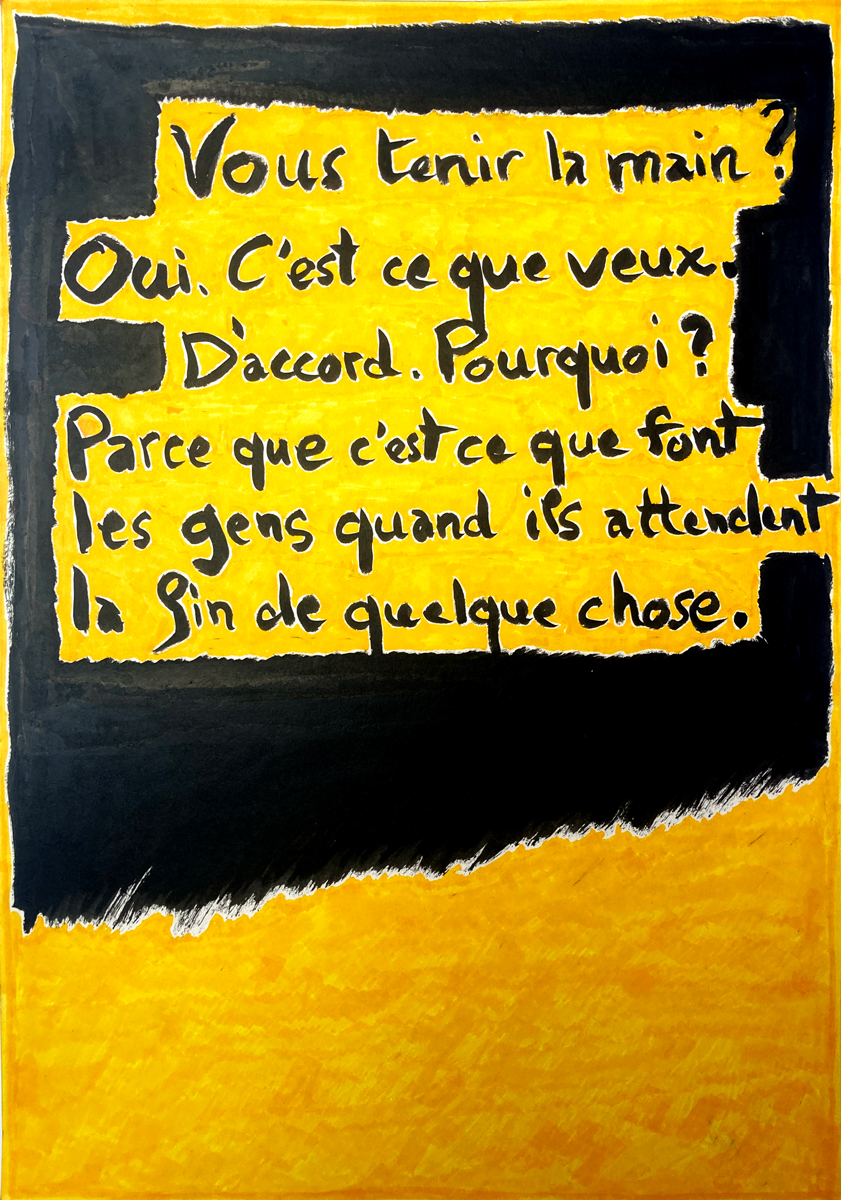 Vous tenir la main ?
Oui. C'est ce que veux.
D'accord. Pourquoi ?
Parce que c'est ce que font
les gens quand ils attendent
la fin de quelque chose.